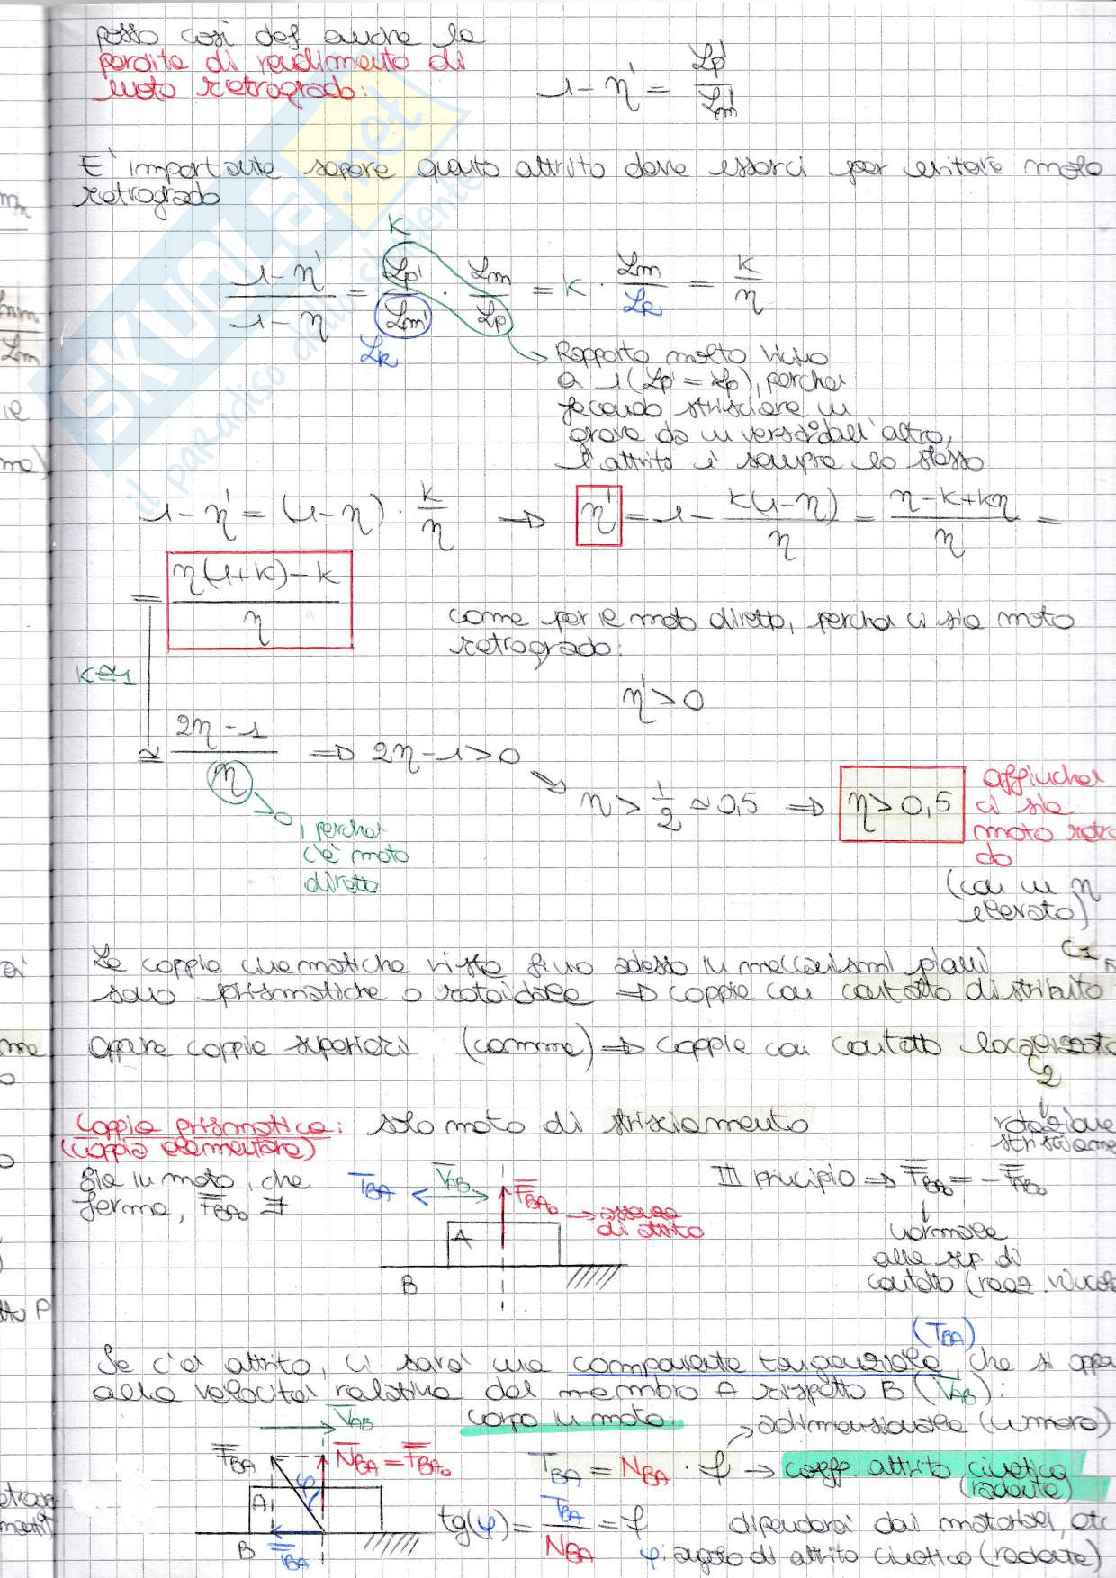 posso così def anche la
perdita di rendimento di
moto retrogrado:
1 - η' = Lp' / Lm'
E' importante sapere quanto attrito deve esserci per evitare moto
retrogrado
K
(1 - η') / (1 - η) = Lp' / Lm' · Lm / Lp = K · Lm / LR = K / η
LR
Rapporto molto vicino
a 1 (Lp' = Lp), perché
facendo strisciare un
grave da un verso o dall'altro,
l'attrito è sempre lo stesso
1 - η' = (1 - η) · K / η ⇒ η' = 1 - K(1 - η) / η = (η - K + Kη) / η =
= (η(1+K) - K) / η
come per il moto diretto, perché ci sia moto
retrogrado:
K≃1
η' > 0
≃ (2η - 1) / η ⇒ 2η - 1 > 0
η > 1/2 ≃ 0,5 ⇒ η > 0,5
affinché
ci sia
moto retro
do
(con un η
elevato)
, perché
c'è moto
diretto
Le coppie cinematiche viste fino adesso in meccanismi piani
C1
sono prismatiche o rotoidale ⇒ coppie con contatto distribuito
oppure coppie superiori (camme) ⇒ coppie con contatto localizzato
C2
Coppia prismatica: solo moto di strisciamento
(coppia elementare)
rotazione
strisciame
Sia in moto, che
ferma, FBA0 ∃
TBA
VAB
FBA0 → assenza
di attrito
A
B
III principio ⇒ FBA0 = - FAB0
normale
alla sup. di
contatto (reaz. vincol
(TBA)
Se c'è attrito, ci sarà una componente tangenziale che si oppo
alla velocità relativa del membro A rispetto B (VAB):
VAB
corpo in moto
adimensionale (numero)
FBA
NBA = FBA0
φ
A
B
TBA
TBA = NBA · f → coeff. attrito cinetico
(radente)
tg(φ) = TBA / NBA = f
dipenderà dai materiali, etc
φ: angolo di attrito cinetico (radente)
SKUOLA.net
il paradiso dello studente